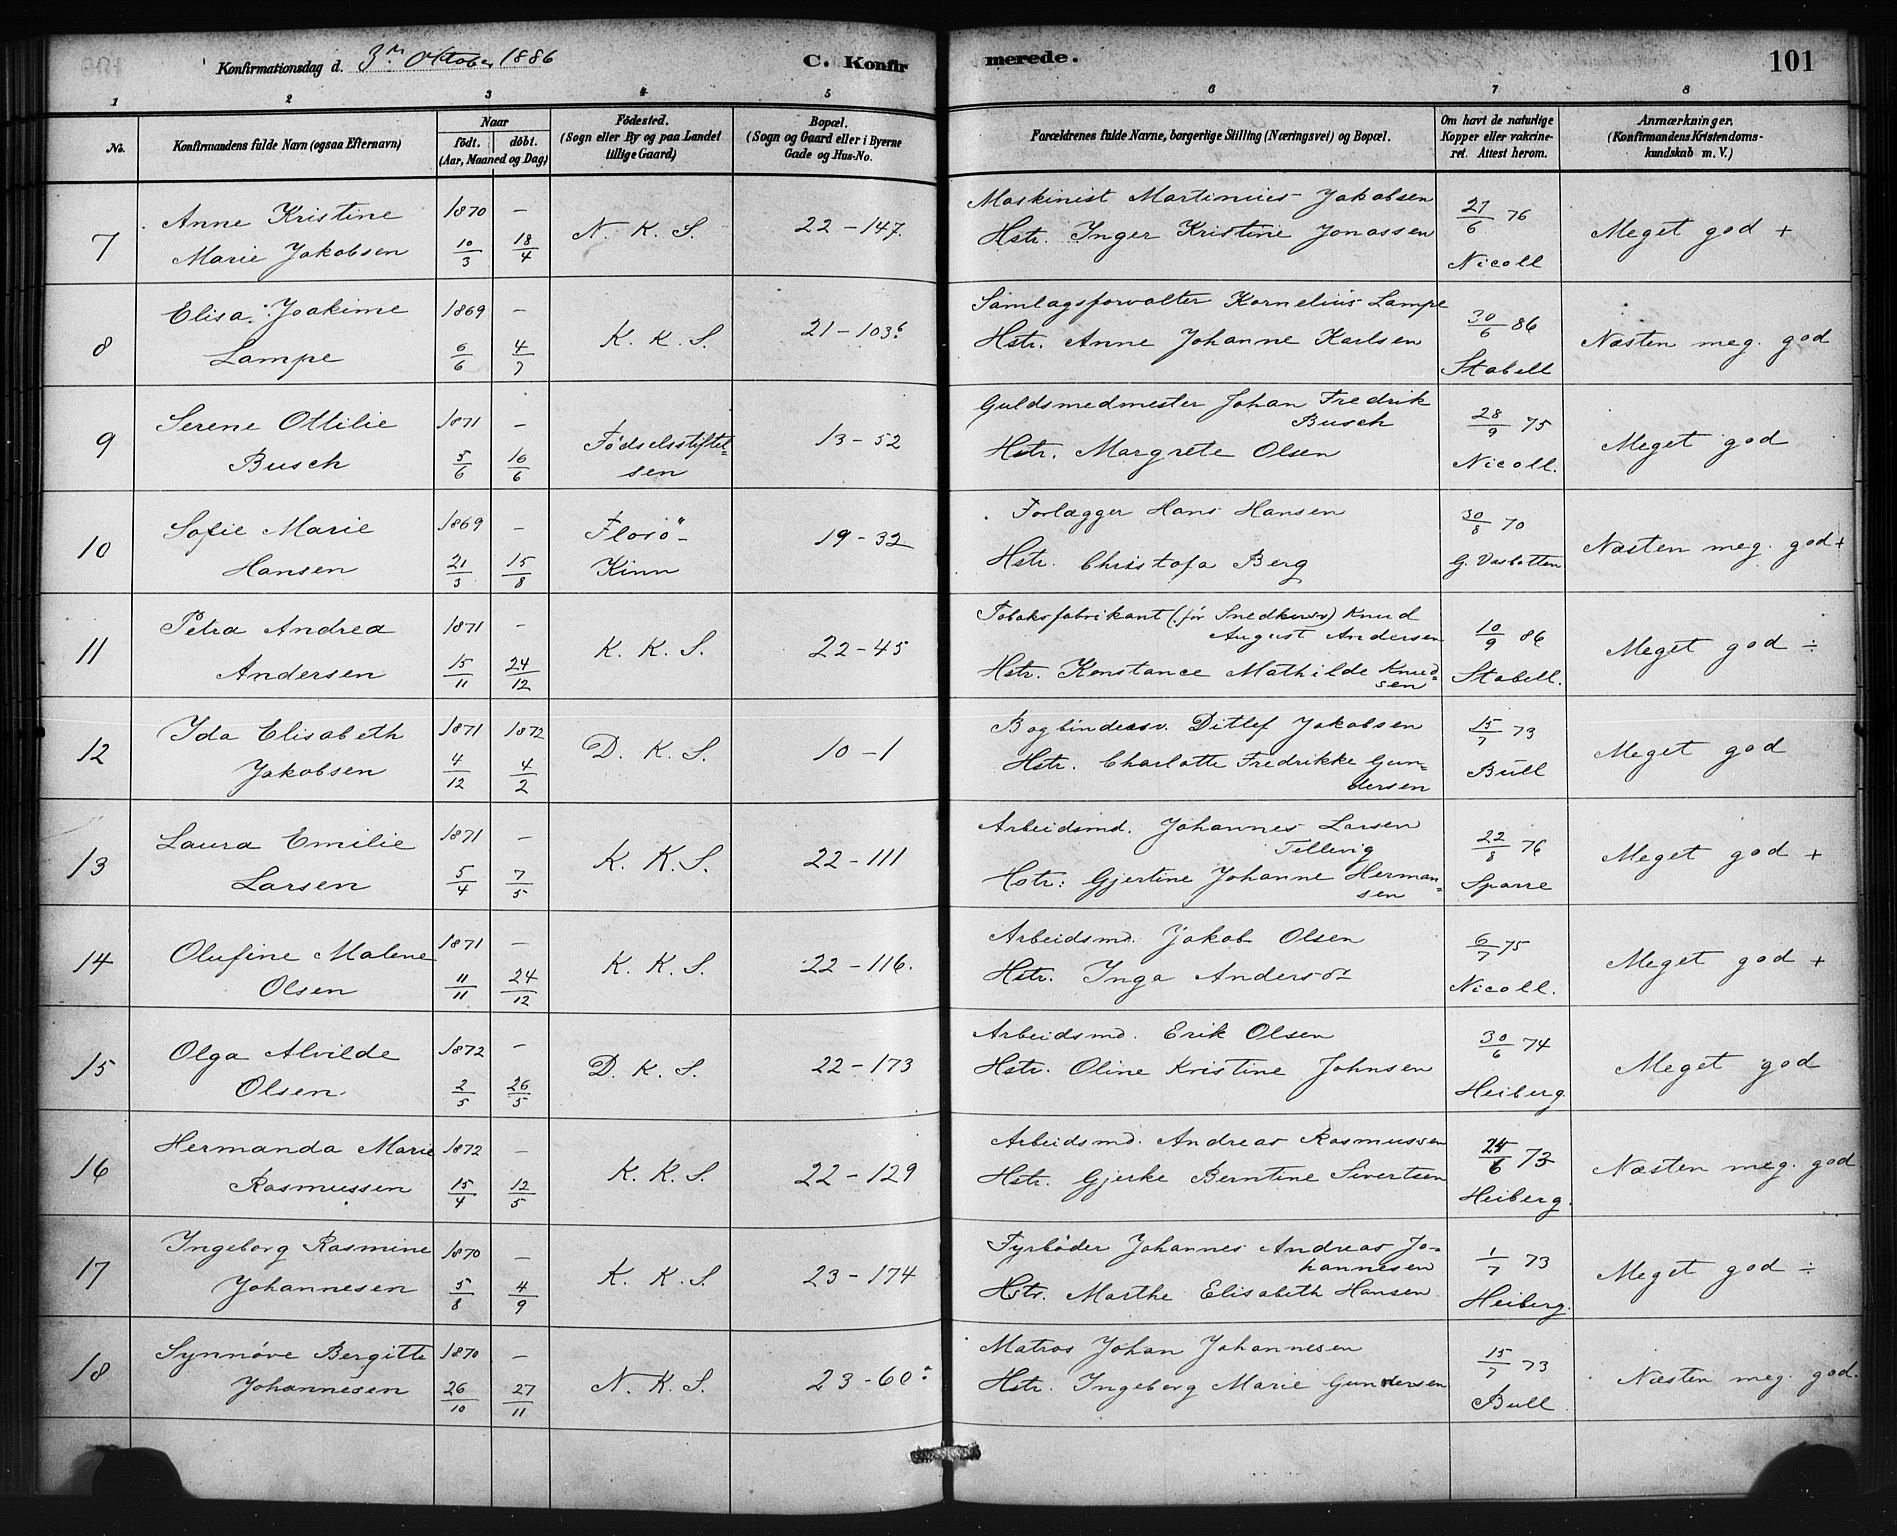 Konfirmationsdag d. 3die Oktober 1886 C. Konfirmerede. 101
1 2 3 4 5 6 7 8
No. Konfirmandens fulde Navn (ogsaa Efternavn) Naar født. døbt. (Aar, Maaned og Dag) Fødested. (Sogn eller By og paa Landet tillige Gaard) Bopæl. (Sogn og Gaard eller i Byerne Gade og Hus-No. Forældrenes fulde Navne, borgerlige Stilling (Næringsvei) og Bopæl. Om havt de naturlige Kopper eller vakcineret. Attest herom. Anmærkninger. (Konfirmandens Kristendomskundskab m. V.)
7 Anne Kristine Marie Jakobsen 1870 10/3 — 18/4 N. K. S. 22-147. Maskinist Martinius Jakobsen
Hstr. Inger Kristine Jonassen 27/6 76 Nicoll Meget god +
8 Elisa Joakime Lampe 1869 6/6 — 4/7 K. K. S. 21-103b Samlagsforvalter Kornelius Lampe
Hstr. Anne Johanne Karlsen 30/6 86 Stabell Næsten meg. god
9 Serene Ottilie Busch 1871 5/6 — 16/6 Fødselsstiftelsen 13-52 Guldsmedmester Johan Fredrik Busch
Hstr. Margrete Olsen 28/9 75 Nicoll. Meget god
10 Sofie Marie Hansen 1869 21/3 — 15/8 Florö- Kinn 19-32 Forlægger Hans Hansen
Hstr. Christofa Berg 30/8 70 G. Vasbotten Næsten meg. god +
11 Petra Andrea Andersen 1871 15/11 — 24/12 K. K. S. 22-45 Tobaksfabrikant (før Snedkersv) Knud August Andersen
Hstr. Konstance Mathilde Knudsen 10/9 86 Stabell. Meget god ÷
12 Ida Elisabeth Jakobsen 1871 4/12 1872 4/2 D. K. S. 10-1 Bogbindersv. Ditlef Jakobsen
Hstr. Charlotte Fredrikke Gundersen 15/7 73 Bull Meget god
13 Laura Emilie Larsen 1871 5/4 — 7/5 K. K. S. 22-111 Arbeidsmd. Johannes Larsen Tellevig
Hstr: Gjertine Johanne Hermansen 22/8 76 Sparre Meget god +
14 Olufine Malene Olsen 1871 11/11 — 24/12 K. K. S. 22-116. Arbeidsmd. Jakob Olsen
Hstr. Inga Andersdt 6/7 75 Nicoll. Meget god +
15 Olga Alvilde Olsen 1872 2/5 — 26/5 D. K. S. 22-173 Arbeidsmd. Erik Olsen
Hstr. Oline Kristine Johnsen 30/6 74 Heiberg. Meget god
16 Hermanda Marie Rasmussen 1872 15/4 — 12/5 K. K. S. 22-129 Arbeidsmd. Andreas Rasmussen
Hstr. Gjerke Berntine Sivertsen 6 73 Heiberg. Næsten meg. god
17 Ingeborg Rasmine Johannesen 1870 5/8 — 4/9 K. K. S. 23-174 Fyrbøder Johannes Andreas Johannesen
Hstr. Marthe Elisabeth Hansen 1/7 73 Heiberg. Meget god ÷
18 Synnøve Bergitte Johannesen 1870 26/10 — 27/11 N. K. S. 23-60a Matros Johan Johannesen
Hstr. Ingeborg Marie Gundersen 15/7 73 Bull Næsten meg. god.